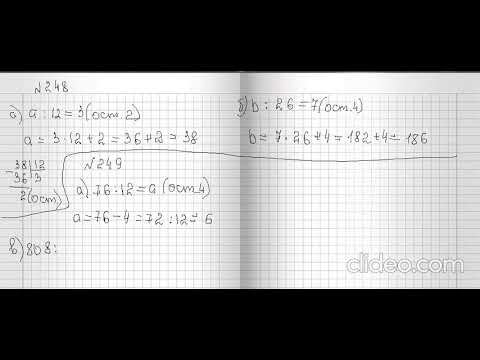 N248
а) a : 12 = 3 (ост. 2)
a = 3 · 12 + 2 = 36 + 2 = 38
38 | 12
- 36 | 3
2 (ост)
б) b : 26 = 7 (ост. 4)
b = 7 · 26 + 4 = 182 + 4 = 186
N249
а) 76 : 12 = a (ост. 4)
a = 76 - 4 = 72 : 12 = 6
в) 808 :
clideo.com